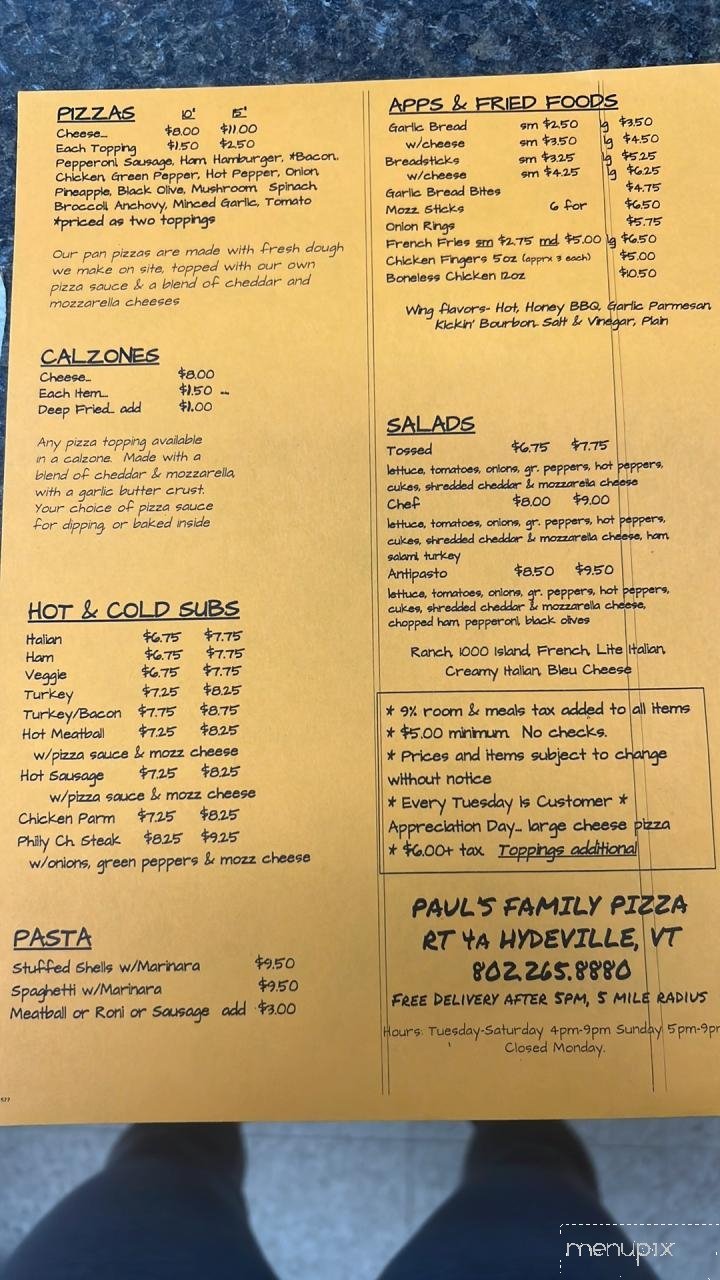 PIZZAS 10" 15"
Cheese... $8.00 $11.00
Each Topping $1.50 $2.50
Pepperoni, Sausage, Ham, Hamburger, *Bacon,
Chicken, Green Pepper, Hot Pepper, Onion,
Pineapple, Black Olive, Mushroom, Spinach
Broccoli, Anchovy, Minced Garlic, Tomato
*priced as two toppings
Our pan pizzas are made with fresh dough
we make on site, topped with our own
pizza sauce & a blend of cheddar and
mozzarella cheeses
CALZONES
Cheese... $8.00
Each Item... $1.50 ...
Deep Fried... add $1.00
Any pizza topping available
in a calzone. Made with a
blend of cheddar & mozzarella,
with a garlic butter crust.
Your choice of pizza sauce
for dipping, or baked inside
HOT & COLD SUBS
Italian $6.75 $7.75
Ham $6.75 $7.75
Veggie $6.75 $7.75
Turkey $7.25 $8.25
Turkey/Bacon $7.75 $8.75
Hot Meatball $7.25 $8.25
w/pizza sauce & mozz cheese
Hot Sausage $7.25 $8.25
w/pizza sauce & mozz cheese
Chicken Parm $7.25 $8.25
Philly Ch. Steak $8.25 $9.25
w/onions, green peppers & mozz cheese
PASTA
Stuffed Shells w/Marinara $9.50
Spaghetti w/Marinara $9.50
Meatball or Roni or Sausage add $3.00
577
APPS & FRIED FOODS
Garlic Bread sm $2.50 lg $3.50
w/cheese sm $3.50 lg $4.50
Breadsticks sm $3.25 lg $5.25
w/cheese sm $4.25 lg $6.25
Garlic Bread Bites $4.75
Mozz Sticks 6 for $6.50
Onion Rings $5.75
French Fries sm $2.75 md $5.00 lg $6.50
Chicken Fingers 5oz (apprx 3 each) $5.00
Boneless Chicken 12oz $10.50
Wing flavors- Hot, Honey BBQ, Garlic Parmesan,
Kickin' Bourbon, Salt & Vinegar, Plain
SALADS
Tossed $6.75 $7.75
lettuce, tomatoes, onions, gr. peppers, hot peppers,
cukes, shredded cheddar & mozzarella cheese
Chef $8.00 $9.00
lettuce, tomatoes, onions, gr. peppers, hot peppers,
cukes, shredded cheddar & mozzarella cheese, ham,
salami, turkey
Antipasto $8.50 $9.50
lettuce, tomatoes, onions, gr. peppers, hot peppers,
cukes, shredded cheddar & mozzarella cheese,
chopped ham, pepperoni, black olives
Ranch, 1000 Island, French, Lite Italian,
Creamy Italian, Bleu Cheese
* 9% room & meals tax added to all items
* $5.00 minimum. No checks.
* Prices and items subject to change
without notice
* Every Tuesday is Customer *
Appreciation Day... large cheese pizza
* $6.00+ tax Toppings additional
PAUL'S FAMILY PIZZA
RT 4A HYDEVILLE, VT
802.265.8880
FREE DELIVERY AFTER 5PM, 5 MILE RADIUS
Hours: Tuesday-Saturday 4pm-9pm Sunday 5pm-9pm
Closed Monday.
menupix